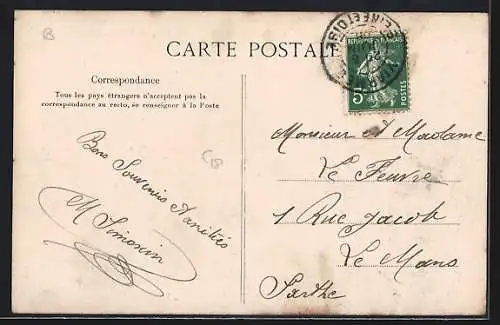 CARTE POSTALE
SEINE ET OISE
REPUBLIQUE FRANÇAISE
5c
POSTES
Correspondance
Tous les pays étrangers n'acceptent pas la
correspondance au recto, se renseigner à la Poste
Bons Souvenirs & Amitiés
M Simonin
Monsieur & Madame
Le Feuvre
1 Rue Jacob
Le Mans
Sarthe